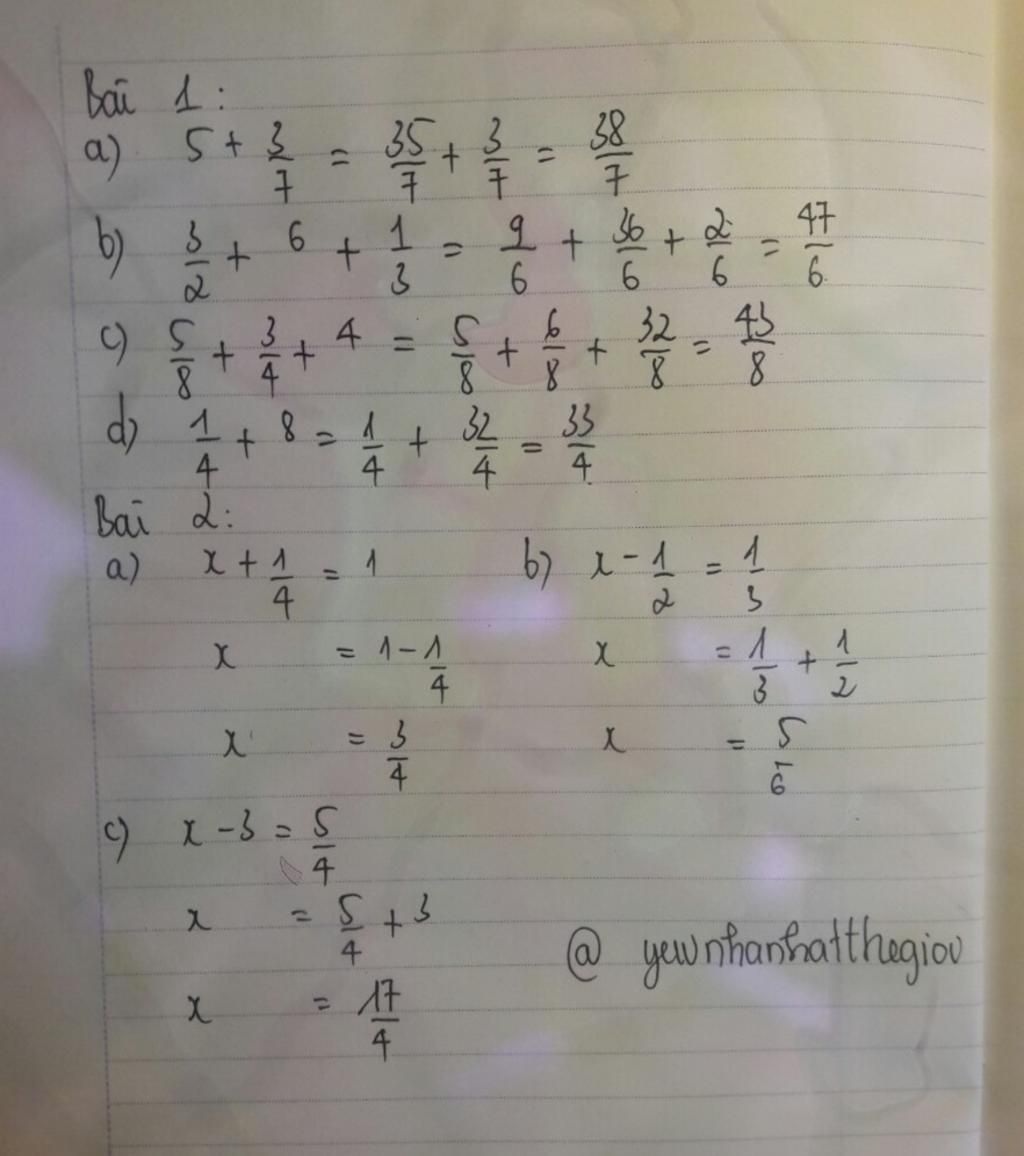 Bài 1:
a) 5 + 3/7 = 35/7 + 3/7 = 38/7
b) 3/2 + 6 + 1/3 = 9/6 + 36/6 + 2/6 = 47/6
c) 5/8 + 3/4 + 4 = 5/8 + 6/8 + 32/8 = 43/8
d) 1/4 + 8 = 1/4 + 32/4 = 33/4
Bài 2:
a) x + 1/4 = 1 b) x - 1/2 = 1/3
x = 1 - 1/4 x = 1/3 + 1/2
x = 3/4 x = 5/6
c) x - 3 = 5/4
x = 5/4 + 3
x = 17/4
@ yewnhanhatthegiou